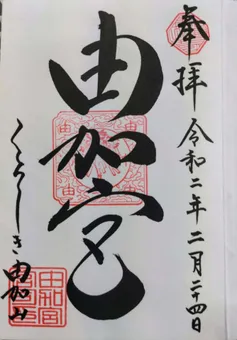 奉拝 令和二年二月二十四日
由加宮
くらしき由加山